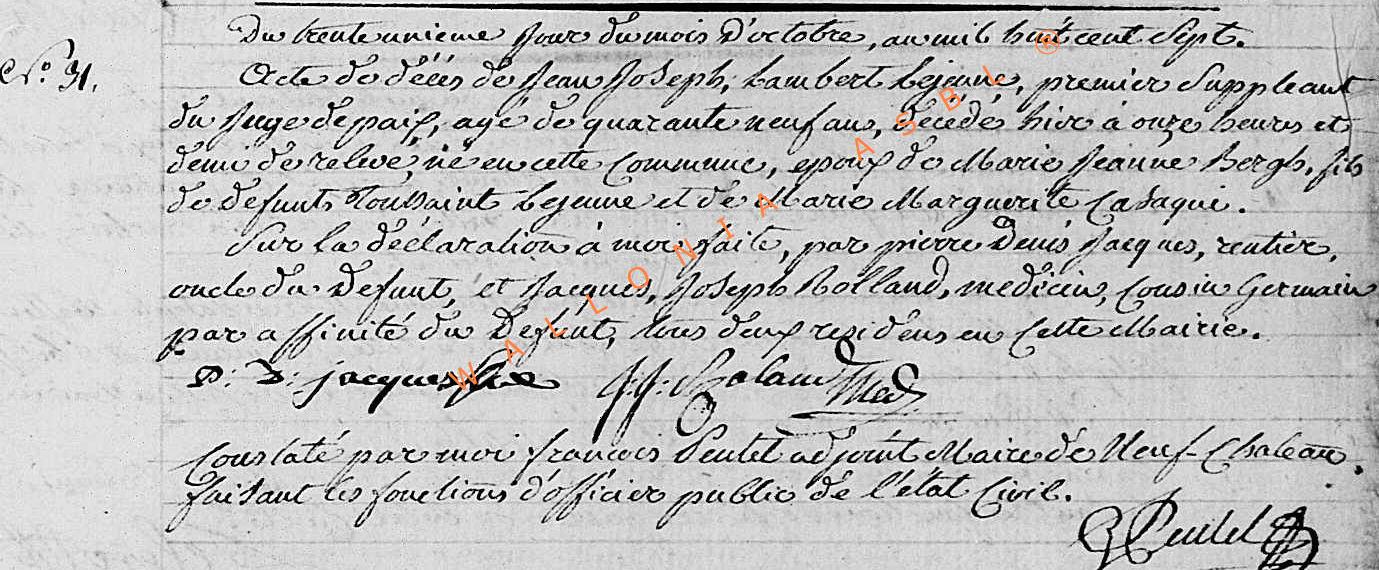 Du trente unieme Jour du mois D'octobre, an mil huit cent Sept.
No. 31.
Acte de décès de Jean Joseph, Lambert Lejeune, premier Suppleant
du Juge de paix, agé de quarante neuf an, décédé hier à onze heures et
demi de relevé, né en cette Commune, epoux de Marie Jeanne Bergh, fils
de defunts Toussaint Lejeune et de Marie Marguerite Casaqui.
Sur la déclaration à moi faite, par pierre Denis Jacques, rentier,
oncle du Defunt, et Jacques, Joseph Rolland, medecin, Cousin Germain
par affinité du Defunt, tous deux residens en Cette Mairie.
P: D: jacques J:J: Roland Med
Constaté par moi françois Peutet adjoint Maire de Neuf-Chateau.
faisant les fonctions d'officier public de l'état Civil.
Peutet
WALLONIA ASBL ®